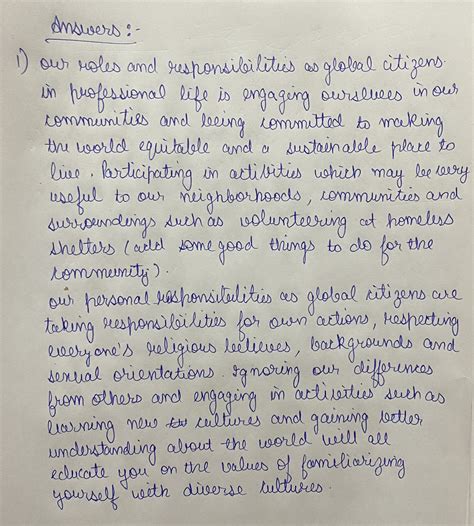 Answers :-
1) our roles and responsibilities as global citizens
in professional life is engaging ourselves in our
communities and being committed to making
the world equitable and a sustainable place to
live. Participating in activities which may be very
useful to our neighborhoods, communities and
surroundings such as volunteering at homeless
shelters (add some good things to do for the
community).
our personal responsibilities as global citizens are
taking responsibilities for own actions, respecting
everyone's religious believes, backgrounds and
sexual orientations. Ignoring our differences
from others and engaging in activities such as
learning new cultures and gaining better
understanding about the world will all
educate you on the values of familiarizing
yourself with diverse cultures.